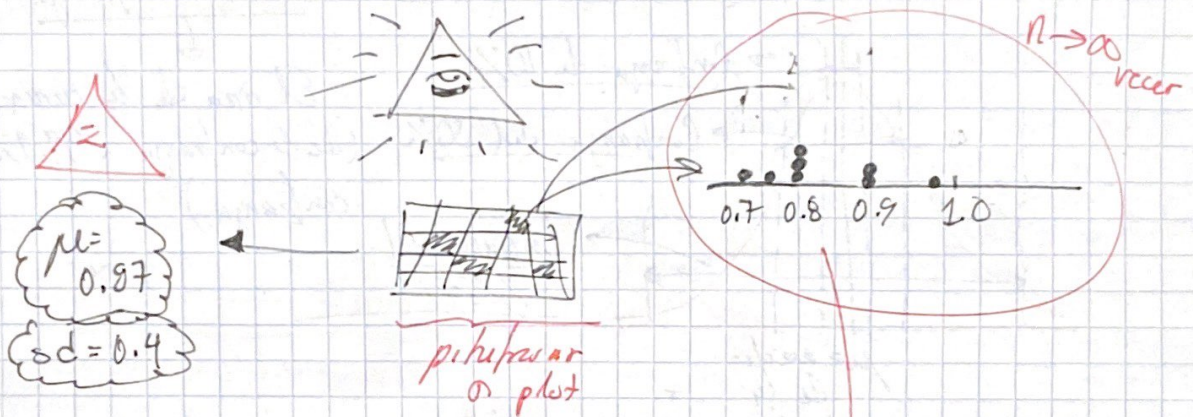 n → ∞
Σ
0.7 0.8 0.9 1.0
μ =
0.87
sd = 0.4
o plot